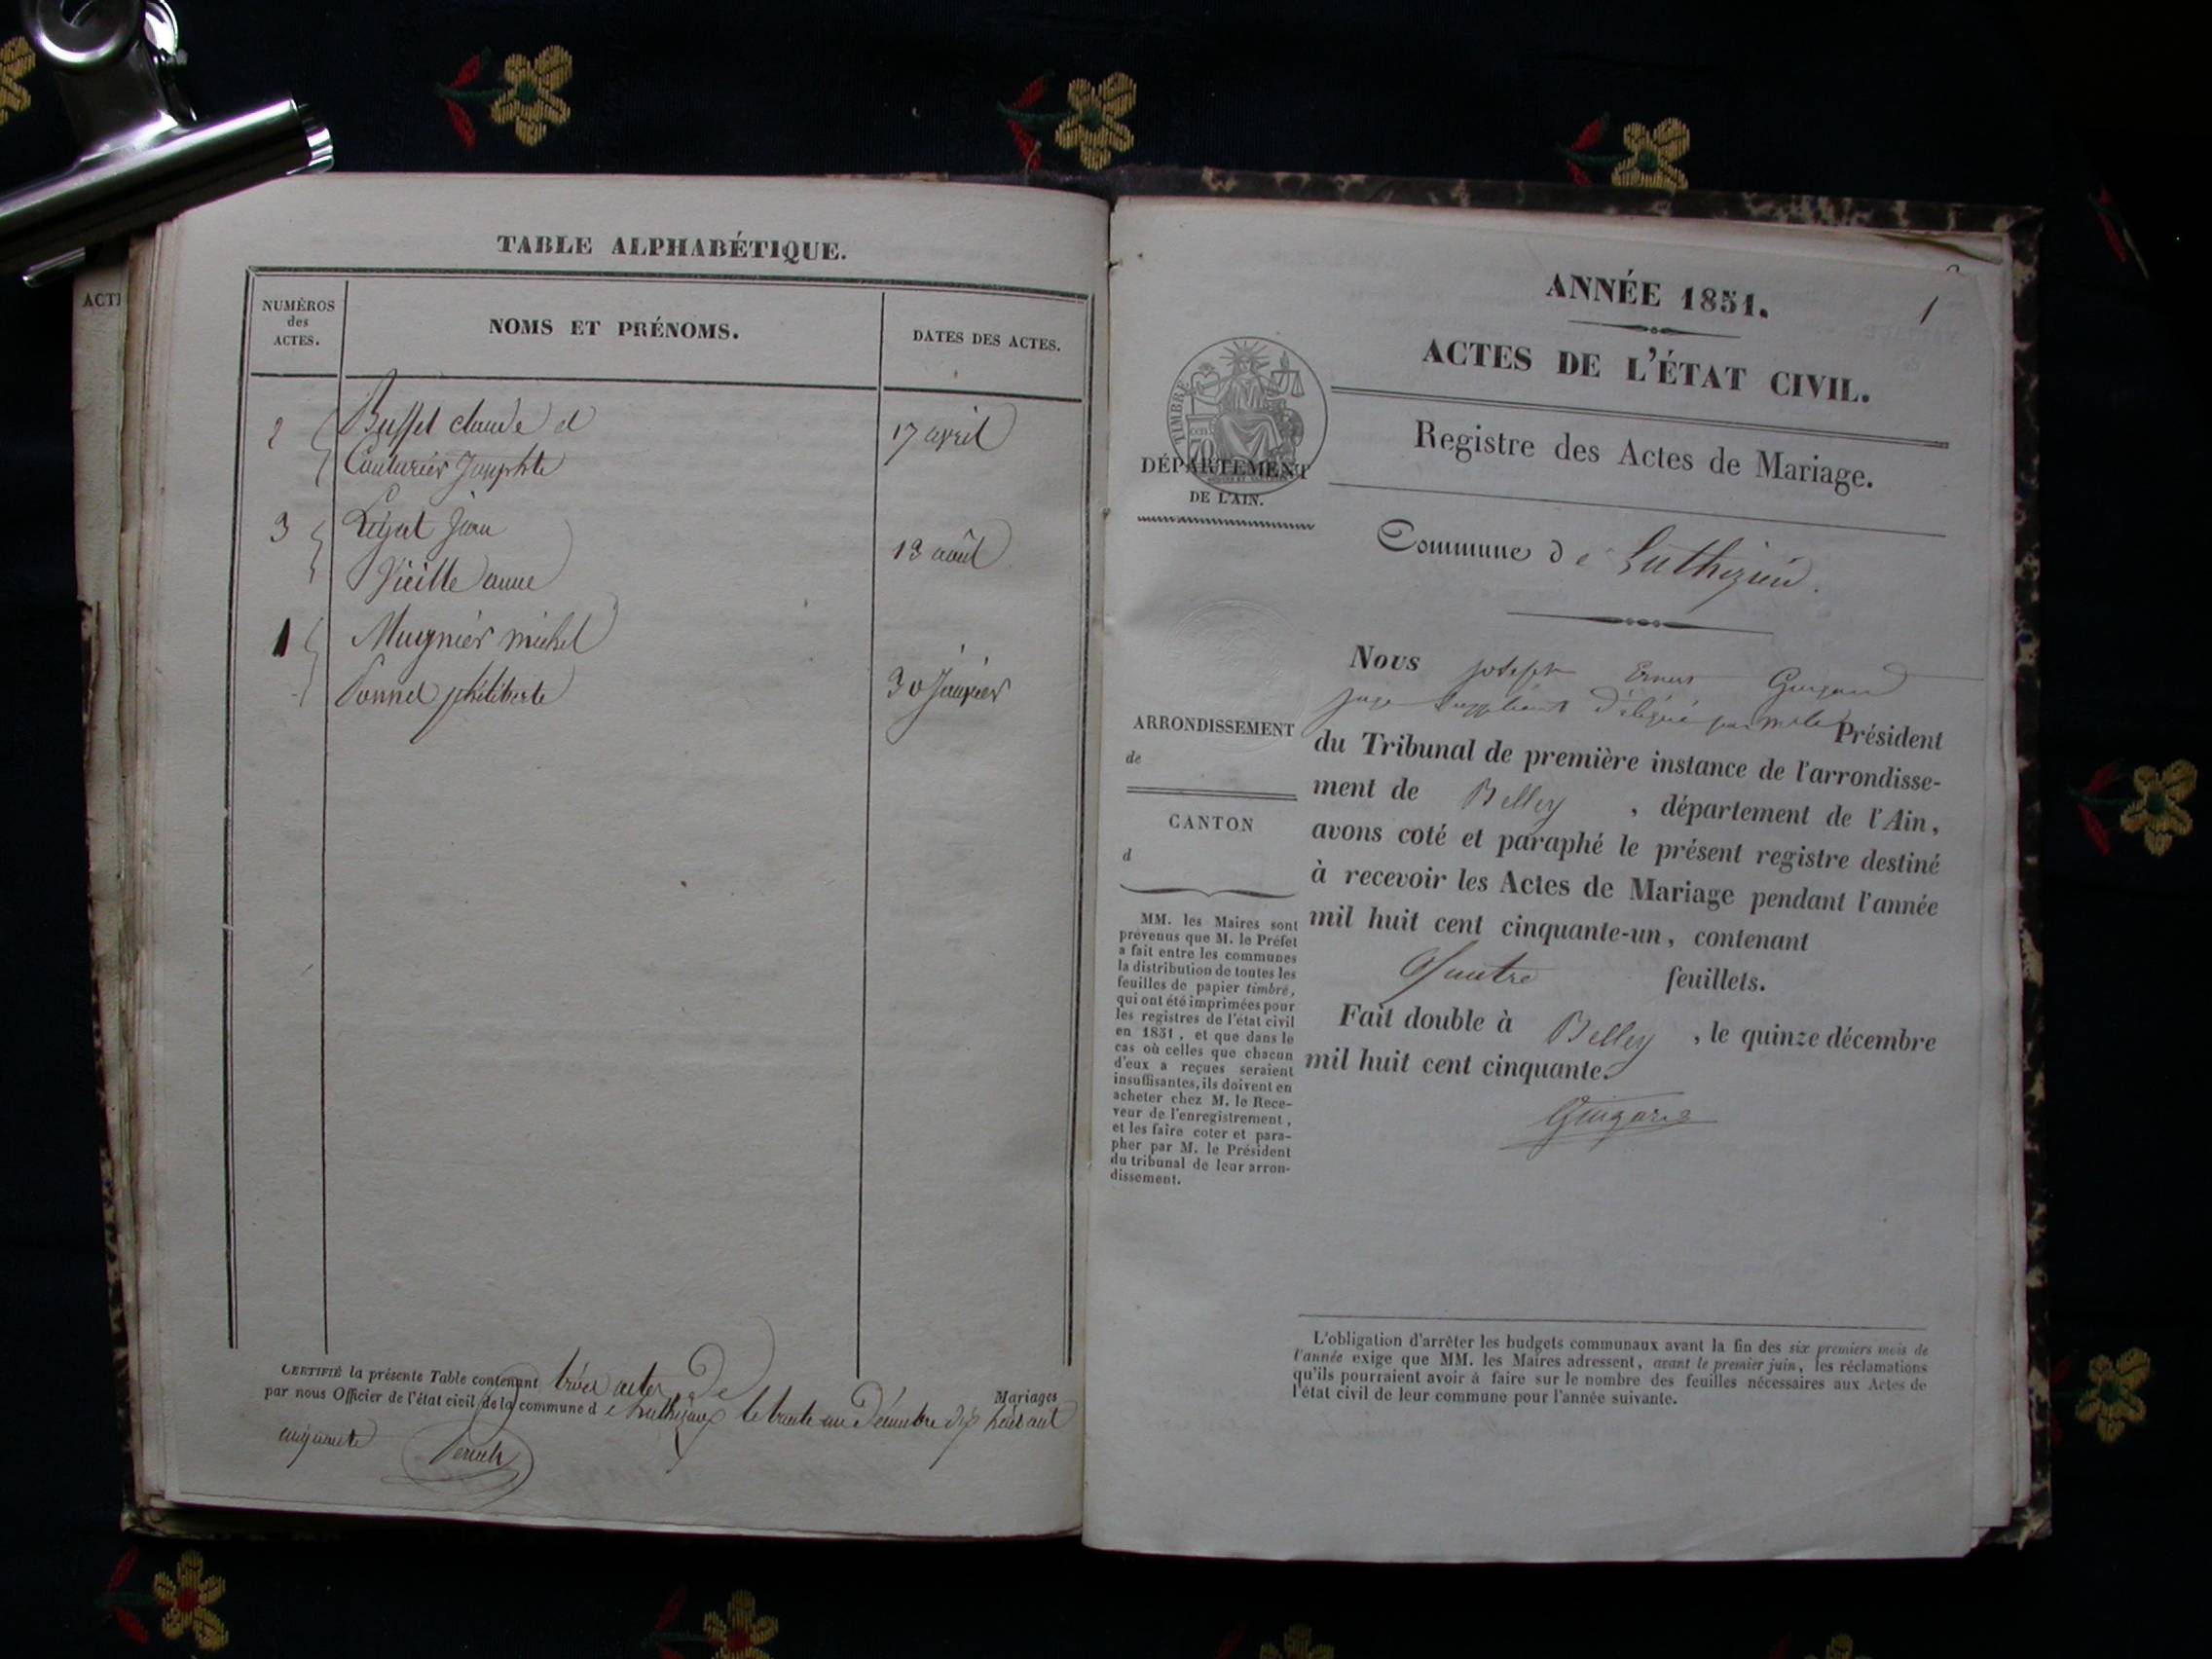 ACTE
TABLE ALPHABÉTIQUE.
NUMÉROS
des
ACTES.
NOMS ET PRÉNOMS.
DATES DES ACTES.
2
Buffet claude et
17 avril
Couturier Josephte
3
Jean
13 août
Vieille anne
1
Mugnier michel
Bonnel philiberte
30 Janvier
CERTIFIÉ la présente Table contenant trois actes de Mariages
par nous Officier de l'état civil de la commune de le trente un Décembre dix huit cent
cinquante
ANNÉE 1851.
1
ACTES DE L'ÉTAT CIVIL.
TIMBRE
DÉPARTEMENT
DE L'AIN.
Registre des Actes de Mariage.
Commune de Luthézieu.
Nous Joseph Ernest
juge suppléant délégué par M. le Président
du Tribunal de première instance de l'arrondisse-
ment de Belley, département de l'Ain,
avons coté et paraphé le présent registre destiné
à recevoir les Actes de Mariage pendant l'année
mil huit cent cinquante-un, contenant
Quatre feuillets.
Fait double à Belley, le quinze décembre
mil huit cent cinquante.
ARRONDISSEMENT
de
CANTON
d
MM. les Maires sont
prévenus que M. le Préfet
a fait entre les communes
la distribution de toutes les
feuilles de papier timbré,
qui ont été imprimées pour
les registres de l'état civil
en 1851, et que dans le
cas où celles que chacun
d'eux a reçues seraient
insuffisantes, ils doivent en
acheter chez M. le Rece-
veur de l'enregistrement,
et les faire coter et para-
pher par M. le Président
du tribunal de leur arron-
dissement.
L'obligation d'arrêter les budgets communaux avant la fin des six premiers mois de
l'année exige que MM. les Maires adressent, avant le premier juin, les réclamations
qu'ils pourraient avoir à faire sur le nombre des feuilles nécessaires aux Actes de
l'état civil de leur commune pour l'année suivante.